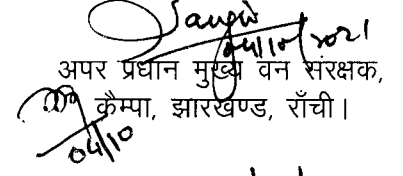 04/10/2021
अपर प्रधान मुख्य वन संरक्षक,
कैम्पा, झारखण्ड, राँची।
04/10